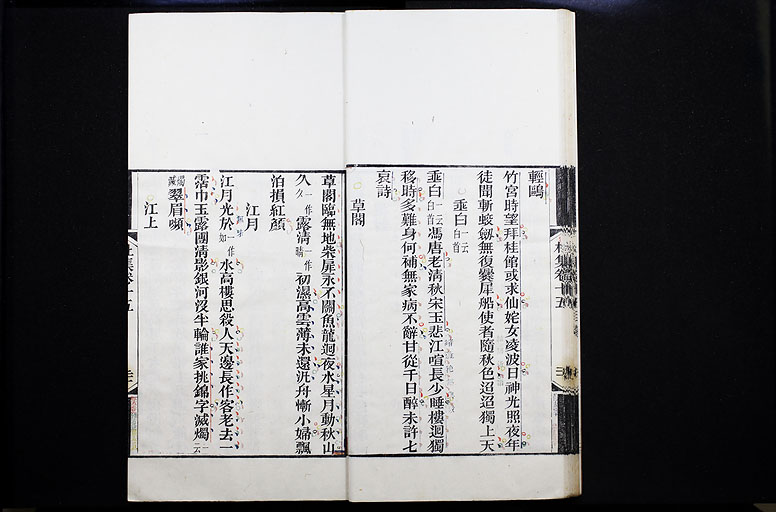 輕鷗
竹宮時望拜桂館或求仙姹女凌波日神光照夜年
徒聞斬蛟劒無復爨犀船使者隨秋色迢迢獨上天
垂白一云白首
垂白一云白首馮唐老清秋宋玉悲江喧長少睡樓迴獨
移時多難身何補無家病不辭甘從千日醉未許七
哀詩
草閣
草閣臨無地柴扉永不關魚龍迴夜水星月動秋山
久一作夕露清一作晴初濕高雲薄未還汎舟慚小婦飄
泊損紅顏
江月
江月光於一作如水高樓思殺人天邊長作客老去一
霑巾玉露團清影銀河沒半輪誰家挑錦字滅燭一云
燭滅翠眉嚬
江上
杜集卷十五
杜集卷十五